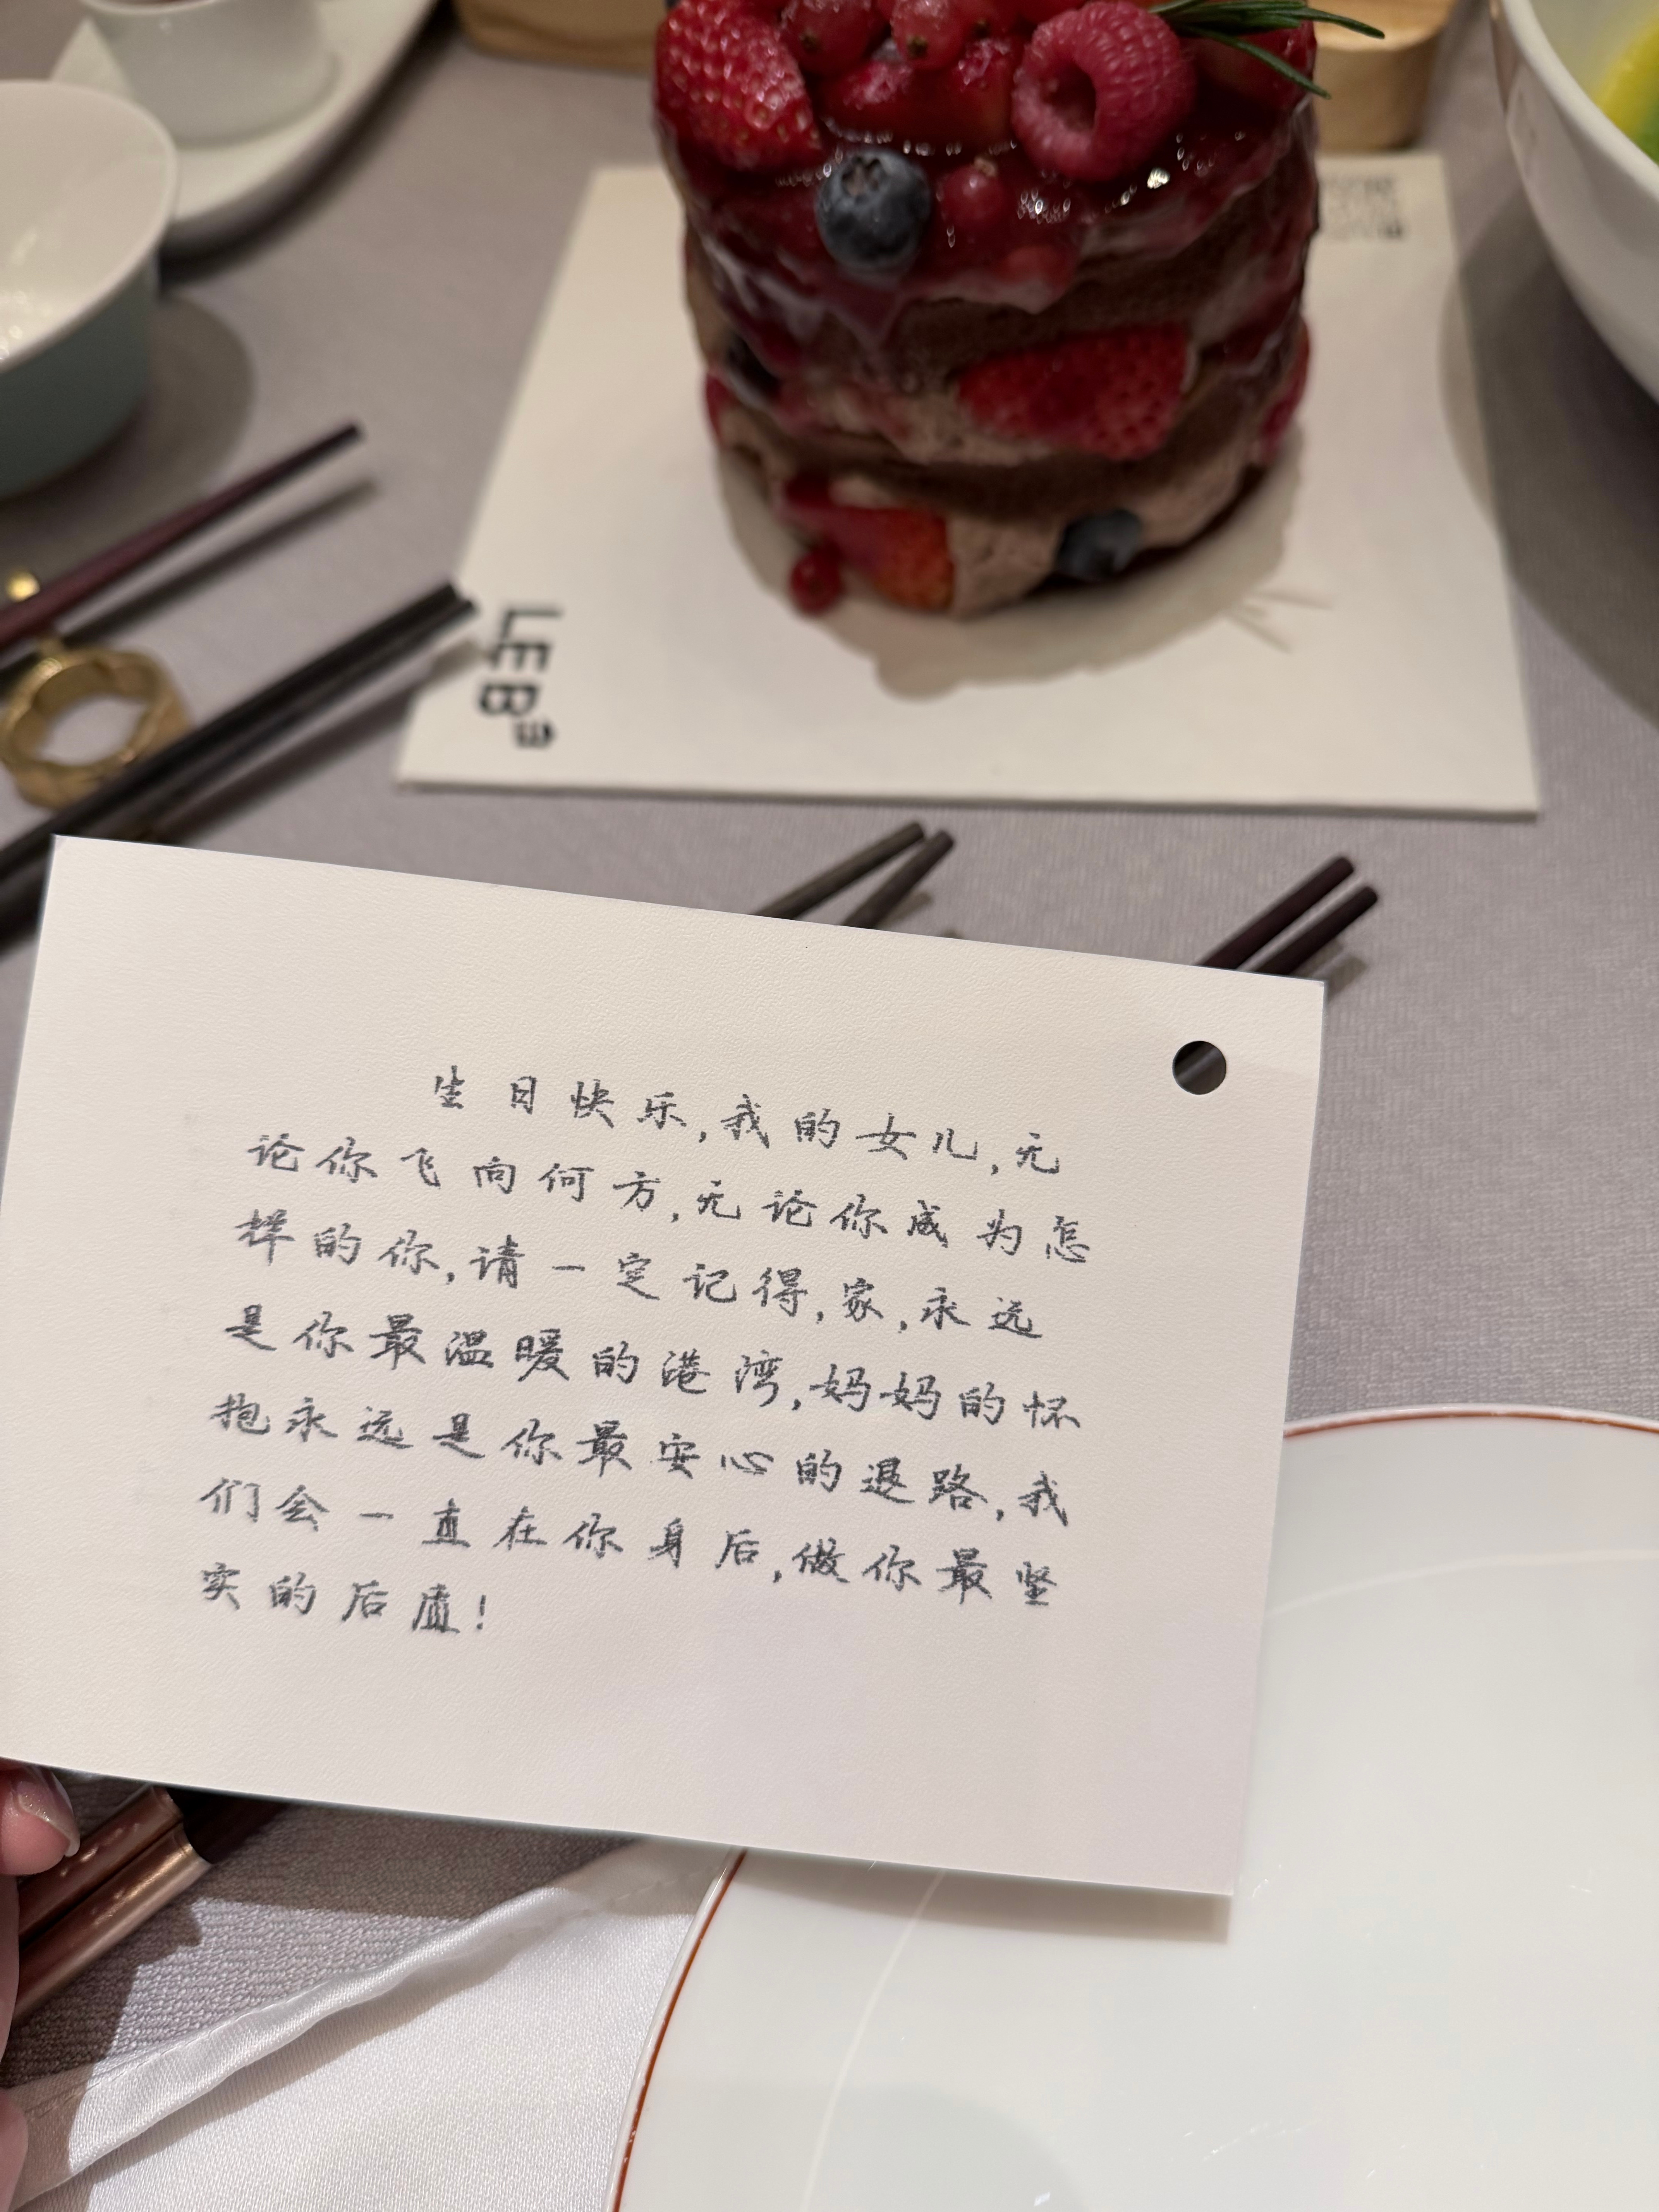 LEB
生日快乐,我的女儿,无
论你飞向何方,无论你成为怎
样的你,请一定记得,家,永远
是你最温暖的港湾,妈妈的怀
抱永远是你最安心的退路,我
们会一直在你身后,做你最坚
实的后盾!